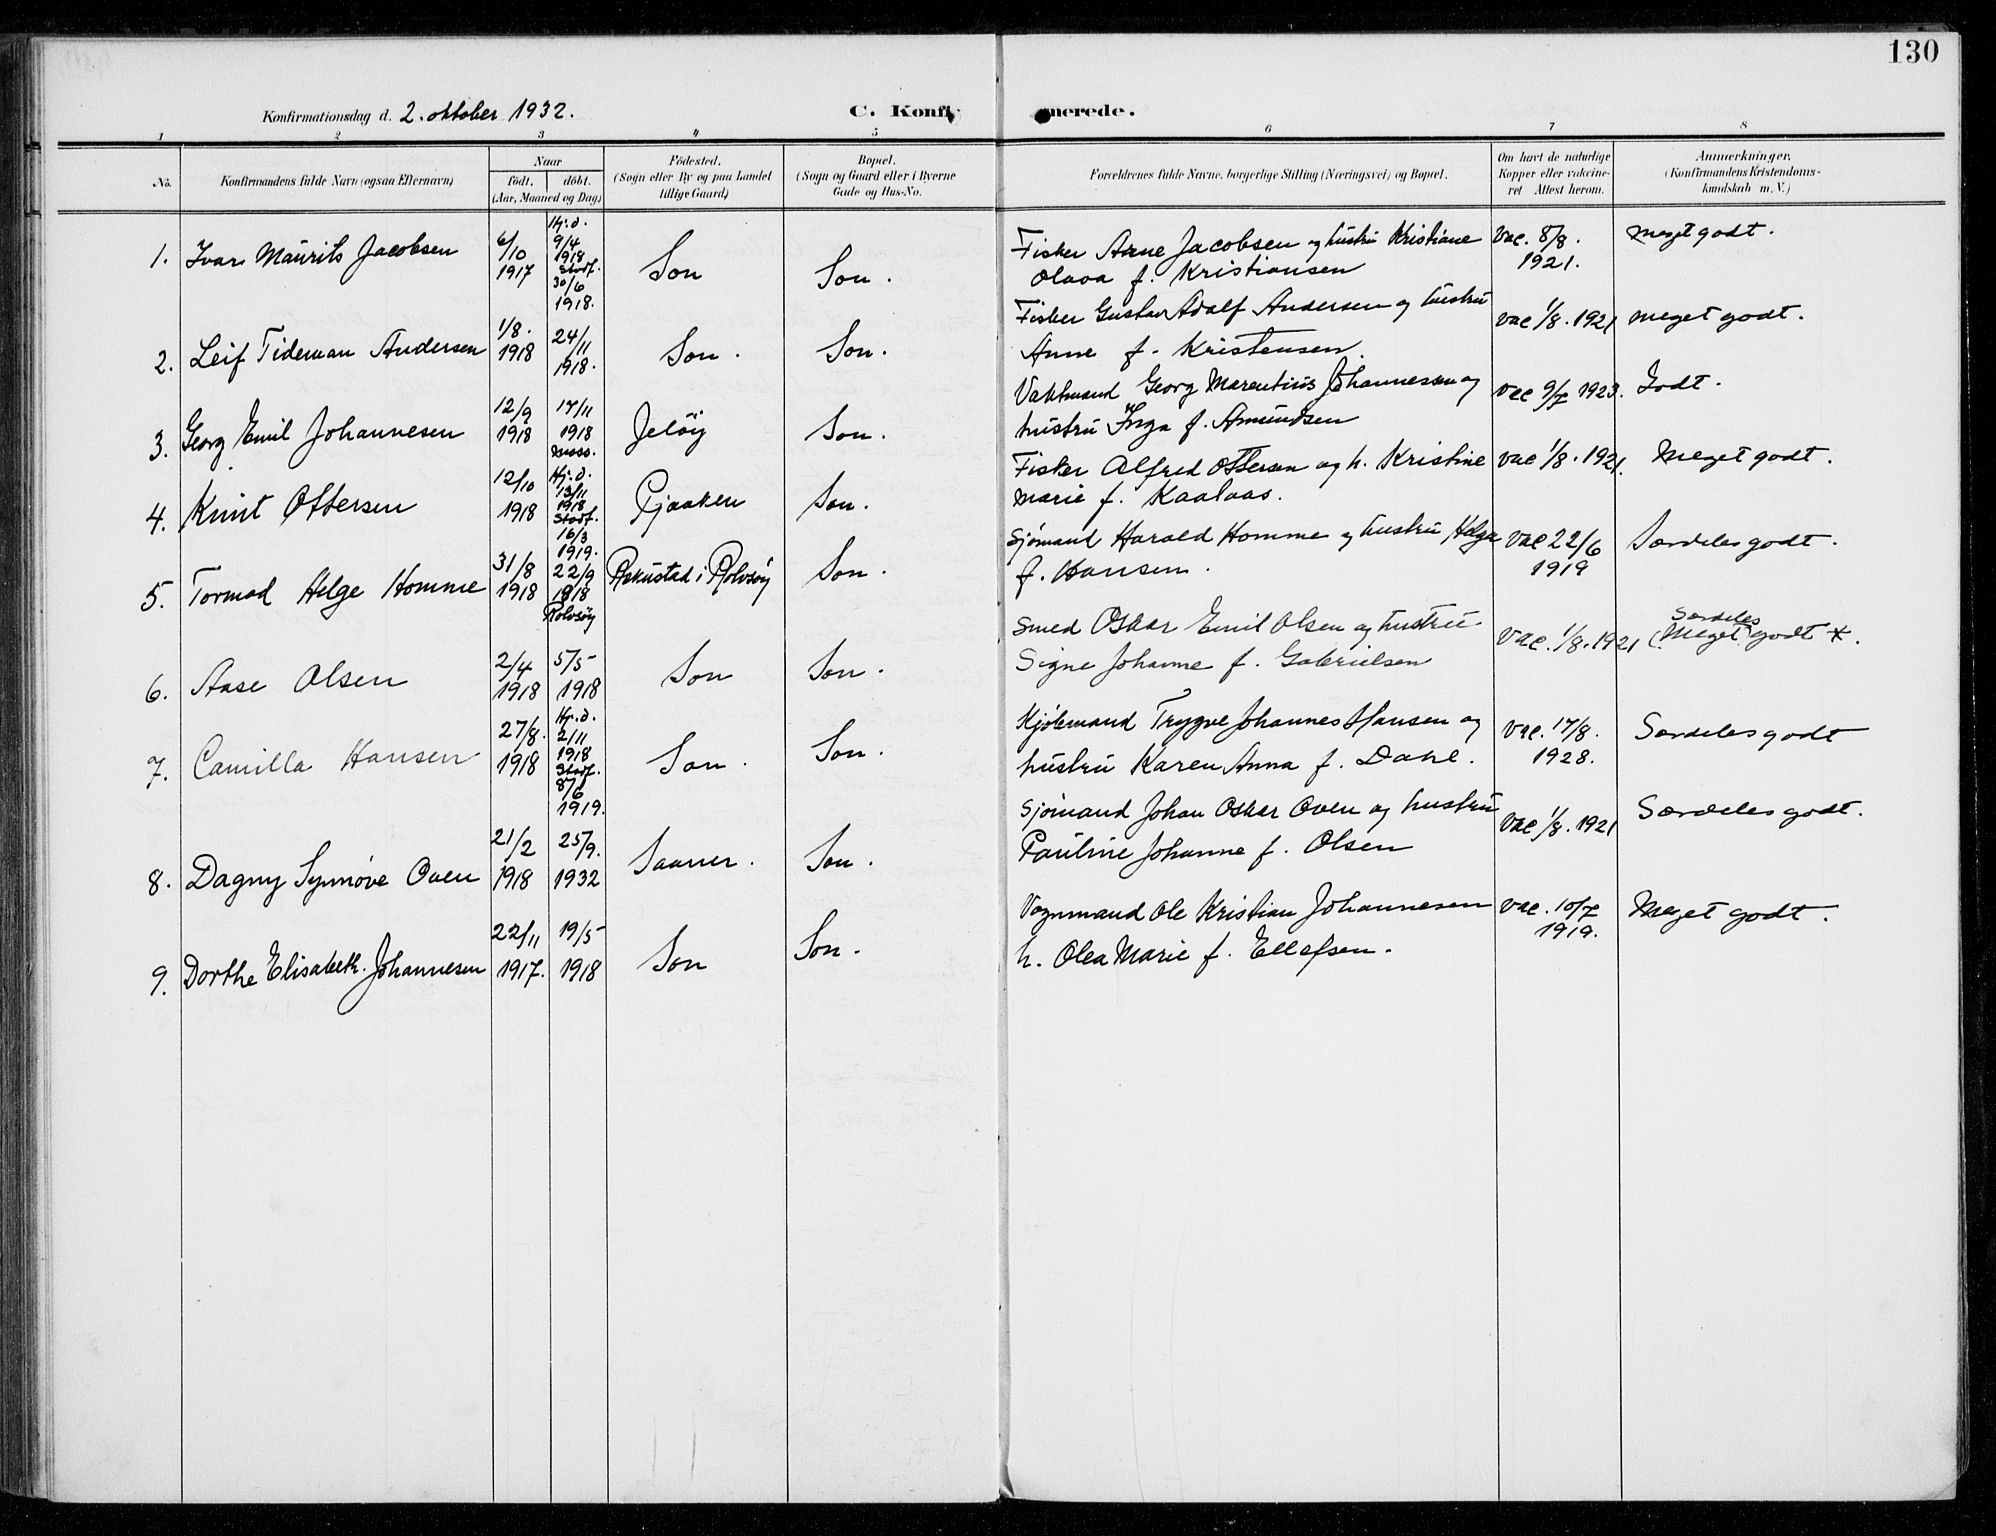 130
Konfirmationsdag d. 2. oktober 1932.
C. Konfirmerede.
1 2 3 4 5 6 7 8
No.
Konfirmandens fulde Navn (ogsaa Efternavn)
Naar
födt. döbt.
(Aar, Maaned og Dag)
Födested.
(Sogn eller By og paa Landet
tillige Gaard)
Bopæl.
(Sogn og Gaard eller i Byerne
Gade og Hus-No.
Forældrenes fulde Navne, borgerlige Stilling (Næringsvei) og Bopæl.
Om havt de naturlige
Kopper eller vakcine-
ret. Attest herom.
Anmærkninger,
(Konfirmandens Kristendoms-
kundskab m. V.)
1. Ivar Maurits Jacobsen
6/10
1917
Hj. d.
9/4
1918
Stadf.
30/6
1918.
Son
Son.
Fisker Arne Jacobsen og hustru Kristiane
Olava f. Kristiansen
Vac. 8/8.
1921.
meget godt.
2. Leif Tideman Andersen
1/8.
1918
24/11
1918.
Son.
Son.
Fisker Gustav Adolf Andersen og hustru
Anne f. Kristensen.
vac 1/8. 1921
meget godt.
3. Georg Emil Johannesen
12/9
1918
17/11
1918
Moss.
Jeløy
Son.
Vaktmand Georg Marentius Johannesen og
hustru Inga f. Amundsen
vac 9/7 1923.
Godt.
4. Knut Ottersen
12/10
1918
Hj. d.
13/11
1918
Stadf.
16/3
1919.
Son.
Fisker Alfred Ottersen og h. Kristine
Marie f. Kaalaas.
vac 1/8. 1921.
Meget godt.
5. Tormod Helge Homme
31/8
1918
22/9
1918
Rolvsøy
Rekustad i Rolvsøy
Son.
Sjømand Harald Homme og hustru Helga
f. Hansen.
vac 22/6
1919
Særdeles godt.
6. Aase Olsen
2/4
1918
5/5
1918
Son
Son.
Smed Oskar Emil Olsen og hustru
Signe Johanne f. Gabrielsen
Vac. 1/8. 1921
Særdeles
(Meget) godt *.
7. Camilla Hansen
27/8.
1918
Hj. d.
2/11
1918
Stadf.
8/6
1919.
Son.
Son.
Kjølemand Trygve Johannes Hansen og
hustru Karen Anna f. Dahl.
Vac. 17/8.
1928.
Særdeles godt
8. Dagny Synnøve Oven
21/2
1918
25/9.
1932
Saaner.
Son.
Sjømand Johan Oskar Oven og hustru
Pauline Johanne f. Olsen
Vac 1/8. 1921
Særdeles godt.
9. Dorthe Elisabeth Johannesen
22/11
1917.
19/5
1918
Son
Son.
Vognmand Ole Kristian Johannesen
h. Olea Marie f. Ellefsen.
vac. 10/7
1919.
Meget godt.